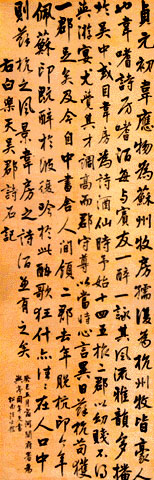 貞元初韋應物為蘇州牧房孺復為杭州牧皆豪人
也韋嗜詩房嗜酒每與賓友一醉一詠其風流雅韻多播
於吳中或目韋房為詩酒仙時予始十四五旅二郡以幼賤不得
與遊宴尤覺其才調高而郡守尊以當時心言異日蘇杭苟獲
一郡足矣及今自中書舍人間領二郡去年脫杭印今年
佩蘇印既醉於彼吟於此酣歌狂什亦往往在人口中
則蘇杭之風景韋房之詩酒兼有之矣
右白樂天吳郡詩石記